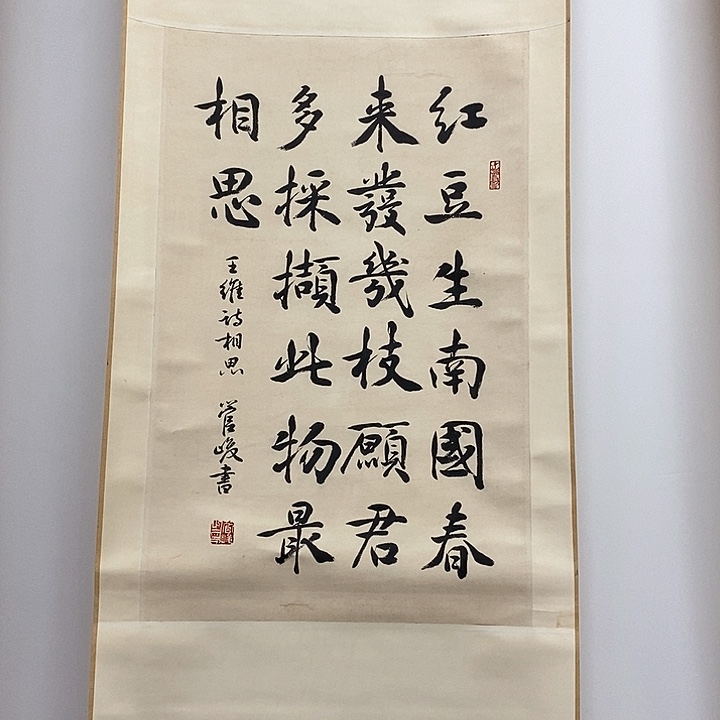 紅豆生南國春
来發幾枝願君
多採擷此物最
相思
王維詩相思 管峻書